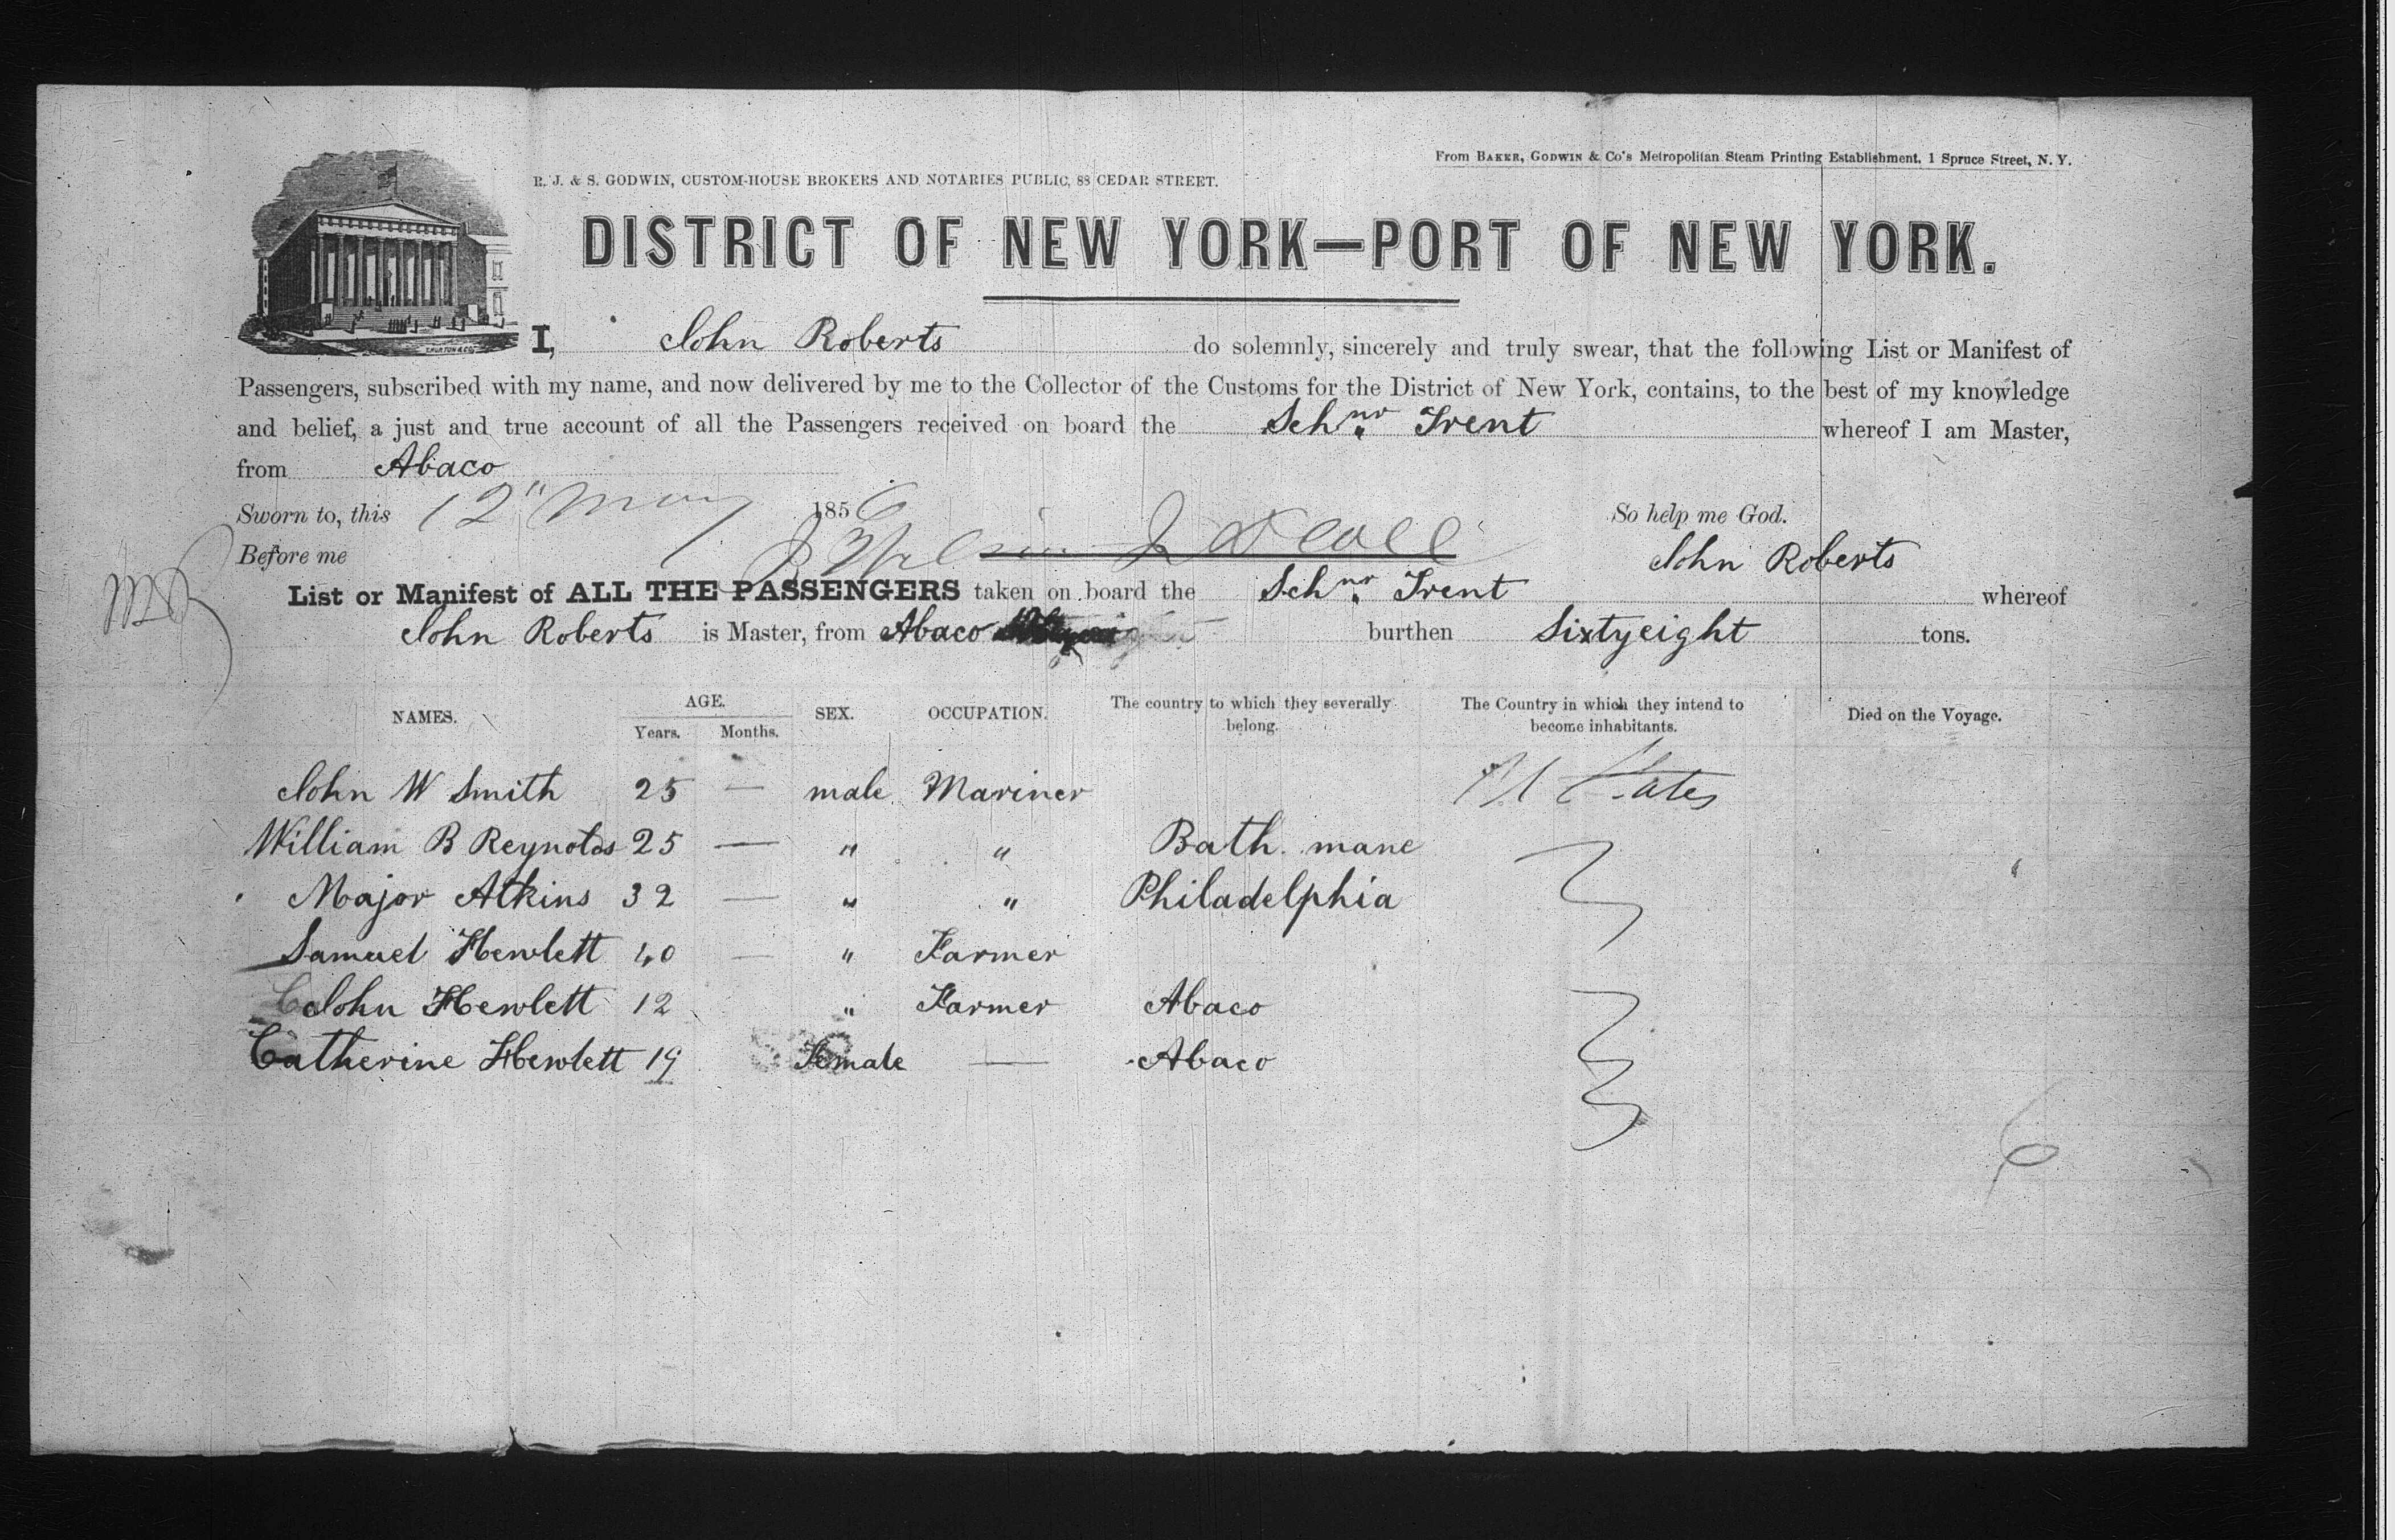 From BAKER, GODWIN & Co's Metropolitan Steam Printing Establishment, 1 Spruce Street, N. Y.
R. J. & S. GODWIN, CUSTOM-HOUSE BROKERS AND NOTARIES PUBLIC, 88 CEDAR STREET.
DISTRICT OF NEW YORK—PORT OF NEW YORK.
I, John Roberts do solemnly, sincerely and truly swear, that the following List or Manifest of
Passengers, subscribed with my name, and now delivered by me to the Collector of the Customs for the District of New York, contains, to the best of my knowledge
and belief, a just and true account of all the Passengers received on board the Schnr Trent whereof I am Master,
from Abaco
Sworn to, this 12" May 1856 So help me God.
Before me John Roberts
List or Manifest of ALL THE PASSENGERS taken on board the Schnr Trent whereof
John Roberts is Master, from Abaco burthen Sixtyeight tons.
NAMES. AGE. Years. Months. SEX. OCCUPATION. The country to which they severally belong. The Country in which they intend to become inhabitants. Died on the Voyage.
John W Smith 25 — male Mariner U States
William B Reynolds 25 — " " Bath. mane
Major Atkins 32 — " " Philadelphia
Samuel Hewlett 40 — " Farmer
John Hewlett 12 " Farmer Abaco
Catherine Hewlett 19 Female — Abaco
6